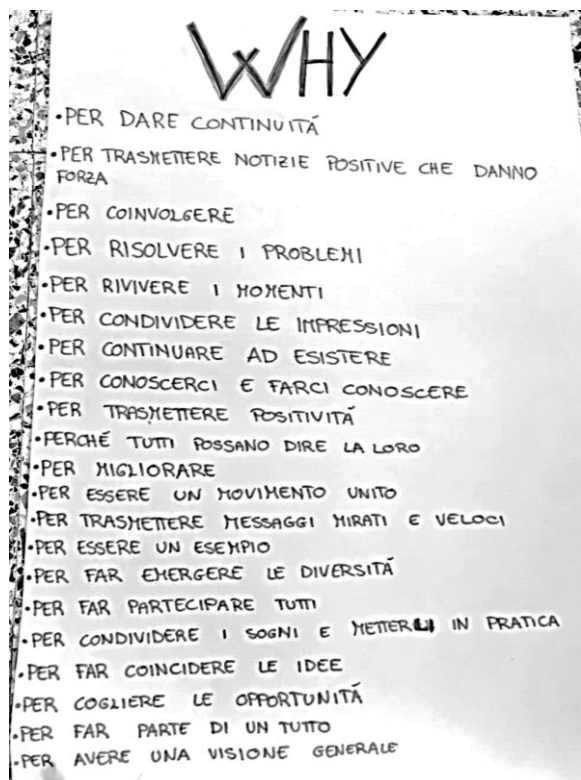 WHY
•PER DARE CONTINUITÁ
•PER TRASMETTERE NOTIZIE POSITIVE CHE DANNO
FORZA
•PER COINVOLGERE
•PER RISOLVERE I PROBLEMI
•PER RIVIVERE I MOMENTI
•PER CONDIVIDERE LE IMPRESSIONI
•PER CONTINUARE AD ESISTERE
•PER CONOSCERCI E FARCI CONOSCERE
•PER TRASMETTERE POSITIVITÁ
•PERCHÉ TUTTI POSSANO DIRE LA LORO
•PER MIGLIORARE
•PER ESSERE UN MOVIMENTO UNITO
•PER TRASMETTERE MESSAGGI MIRATI E VELOCI
•PER ESSERE UN ESEMPIO
•PER FAR EMERGERE LE DIVERSITÁ
•PER FAR PARTECIPARE TUTTI
•PER CONDIVIDERE I SOGNI E METTERLI IN PRATICA
•PER FAR COINCIDERE LE IDEE
•PER COGLIERE LE OPPORTUNITÁ
•PER FAR PARTE DI UN TUTTO
•PER AVERE UNA VISIONE GENERALE